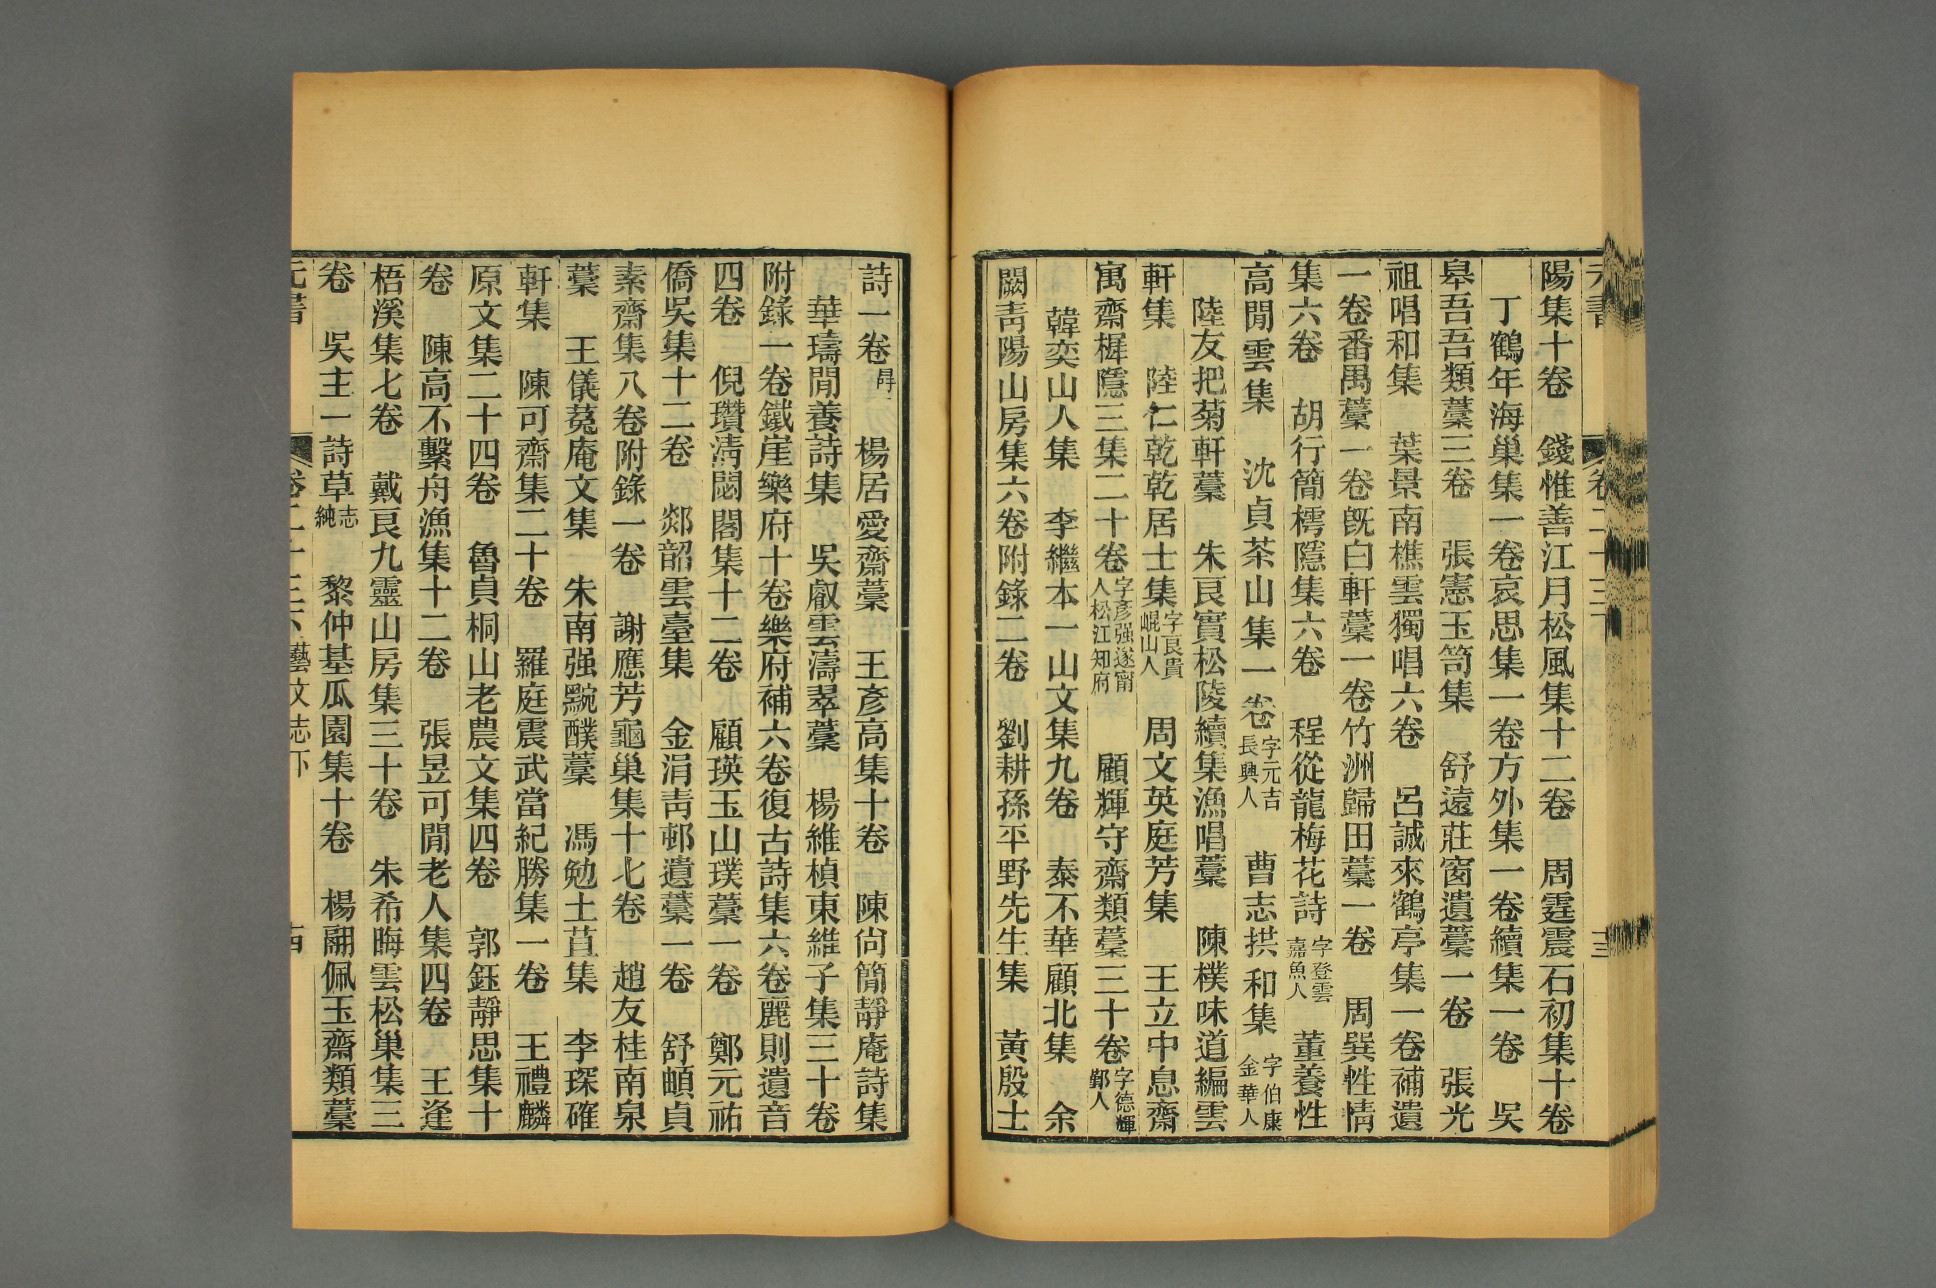 陽集十卷　錢惟善江月松風集十二卷　周霆震石初集十卷
丁鶴年海巢集一卷哀思集一卷方外集一卷續集一卷　吳
皋吾吾類藁三卷　張憲玉笥集　舒遠莊窗遺藁一卷　張光
祖唱和集　葉景南樵雲獨唱六卷　呂誠來鶴亭集一卷補遺
一卷番禺藁一卷旣白軒藁一卷竹洲歸田藁一卷　周巽性情
集六卷　胡行簡樗隱集六卷　程從龍梅花詩字登雲嘉魚人　董養性
高閒雲集　沈貞茶山集一卷字元吉長興人　曹志拱和集字伯康金華人
陸友把菊軒藁　朱艮實松陵續集漁唱藁　陳樸味道編雲
軒集　陸仁乾乾居士集字艮貴崐山人　周文英庭芳集　王立中息齋
寓齋樨隱三集二十卷字彥强遂甯人松江知府　顧輝守齋類藁三十卷字德輝鄞人
韓奕山人集　李繼本一山文集九卷　泰不華顧北集　余
闕靑陽山房集六卷附錄二卷　劉耕孫平野先生集　黃殷士
詩一卷　楊居愛齋藁　王彥高集十卷　陳尙簡靜庵詩集
華璹閒養詩集　吳叡雲濤翠藁　楊維楨東維子集三十卷
附錄一卷鐵崖樂府十卷樂府補六卷復古詩集六卷麗則遺音
四卷　倪瓚淸閟閣集十二卷　顧瑛玉山璞藁一卷　鄭元祐
僑吳集十二卷　郯韶雲臺集　金涓靑邨遺藁一卷　舒頔貞
素齋集八卷附錄一卷　謝應芳龜巢集十七卷　趙友桂南泉
藁　王儀菟庵文集　朱南强黦醭藁　馮勉土苴集　李琛確
軒集　陳可齋集二十卷　羅庭震武當紀勝集一卷　王禮麟
原文集二十四卷　魯貞桐山老農文集四卷　郭鈺靜思集十
卷　陳高不繫舟漁集十二卷　張昱可閒老人集四卷　王逢
梧溪集七卷　戴艮九靈山房集三十卷　朱希晦雲松巢集三
卷　吳主一詩草志純　黎仲基瓜園集十卷　楊翮佩玉齋類藁
元書　卷二十三下　藝文志下　十四